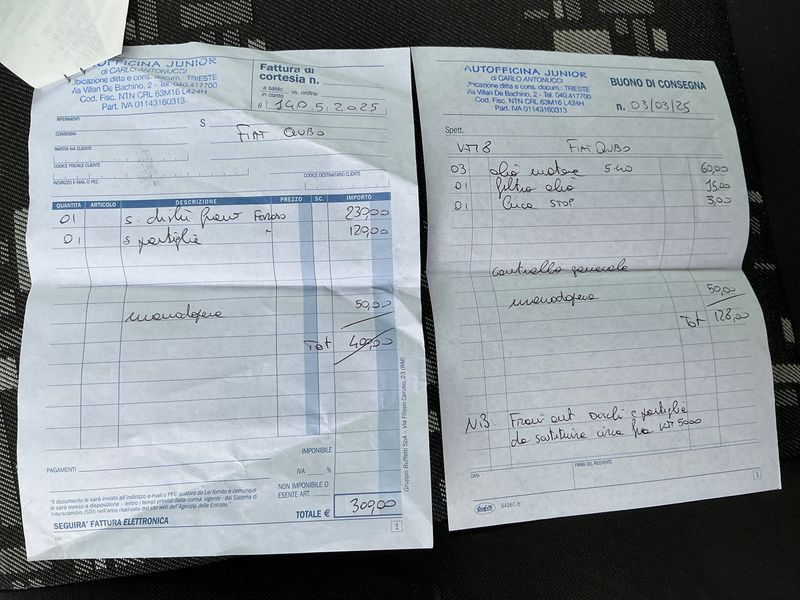 AUTOFFICINA JUNIOR
di CARLO ANTONUCCI
Ubicazione ditta e cons. docum.: TRIESTE
Via Villan De Bachino, 2 - Tel. 040.417700
Cod. Fisc. NTN CRL 63M16 L424H
Part. IVA 01143160313
Fattura di
cortesia n.
a saldo
in conto
vs. ordine
RIFERIMENTI
CONSEGNA
S
FIAT QUBO
PARTITA IVA CLIENTE
CODICE FISCALE CLIENTE
INDIRIZZO E-MAIL O PEC
CODICE DESTINATARIO CLIENTE
QUANTITÀ ARTICOLO DESCRIZIONE PREZZO SC. IMPORTO
01 s. dischi freno 230,00
01 s pastiglie " 120,00
manodopera 50,00
Tot 400,00
IMPONIBILE
PAGAMENTI
IVA %
NON IMPONIBILE O
ESENTE ART.
"Il documento le sarà inviato all'indirizzo e-mail o PEC qualora da Lei fornito e comunque
le sarà messo a disposizione – entro i tempi previsti dalla norma vigente - dal Sistema di
Interscambio (SDI) nell'area riservata del sito web dell'Agenzia delle Entrate."
SEGUIRA' FATTURA ELETTRONICA
TOTALE €
300,00
1
Gruppo Buffetti SpA - Via Filippo Caruso, 23 (RM)
AUTOFFICINA JUNIOR
di CARLO ANTONUCCI
Ubicazione ditta e cons. docum.: TRIESTE
Via Villan De Bachino, 2 - Tel. 040.417700
Cod. Fisc. NTN CRL 63M16 L424H
Part. IVA 01143160313
BUONO DI CONSEGNA
n. 03/03/25
Spett.
FIAT QUBO
03 olio motore 5-40 60,00
01 filtro olio 15,00
01 luce STOP 3,00
controllo generale
manodopera 50,00
Tot 128,00
NB Freni ant Dischi e pastiglie
da sostituire circa fra KM 5000
DATA
FIRMA DEL RICEVENTE
Buffetti
1